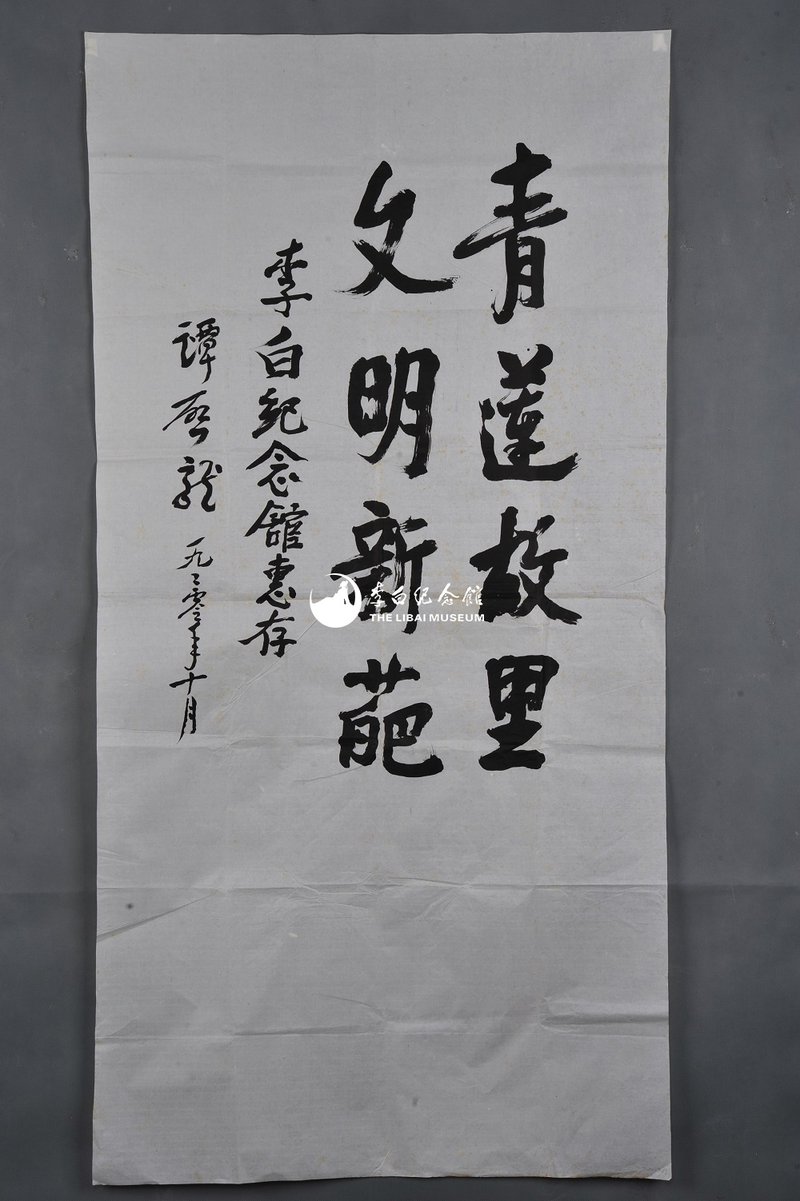 青蓮故里
文明新葩
李白紀念舘惠存
谭启龍 一九九零年十月
李白纪念館
THE LIBAI MUSEUM